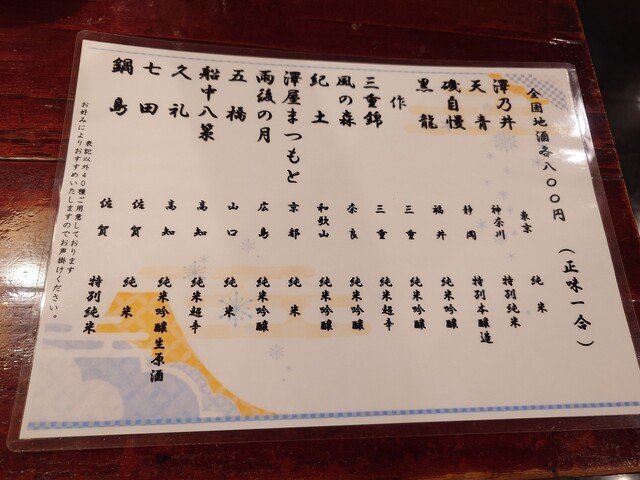 全国地酒各八〇〇円 (正味一合)
澤乃井 東京 純米
天青 神奈川 特別純米
磯自慢 静岡 特別本醸造
黒龍 福井 純米吟醸
作 三重 純米吟醸
三重錦 三重 純米超辛
風の森 奈良 純米吟醸
紀土 和歌山 純米吟醸
澤屋まつもと 京都 純米
雨後の月 広島 純米吟醸
五橋 山口 純米
船中八策 高知 純米超辛
久礼 高知 純米吟醸生原酒
七田 佐賀 純米
鍋島 佐賀 特別純米
表記以外40種ご用意しております
お好みによりおすすめいたしますのでお声掛けください。